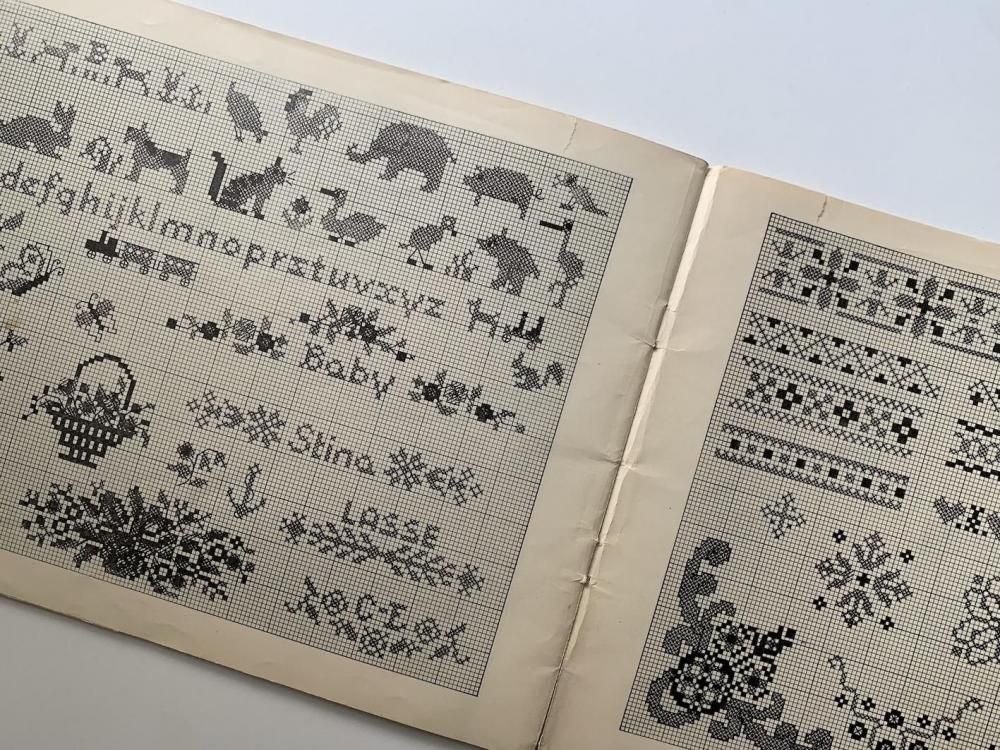 defghijklmnoprstuvxyz
Baby
Stina
LASSE
C-E